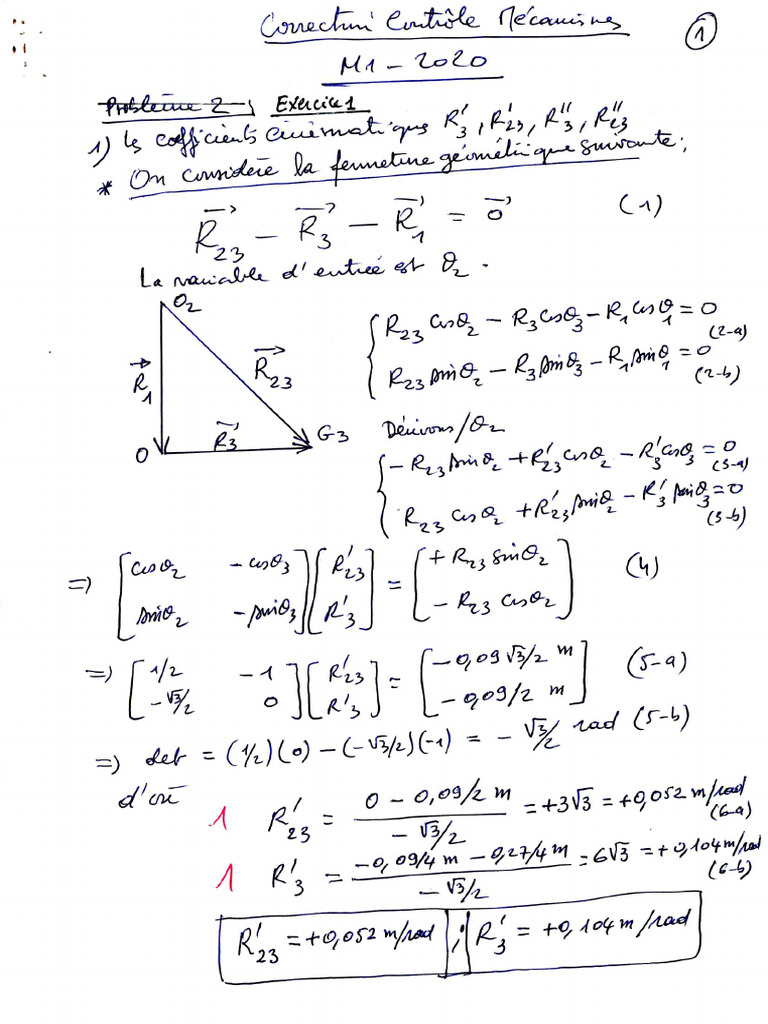 Correction Contrôle Mécanismes
①
M1 - 2020
Problème 2, Exercice 1
1) Les coefficients cinématiques R'₃, R'₂₃, R''₃, R''₂₃
* On considère la fermeture géométrique suivante :
R⃗₂₃ - R⃗₃ - R⃗₁ = 0⃗ (1)
La variable d'entrée est θ₂.
O₂
R⃗₁
R⃗₂₃
R⃗₃
O
G3
R₂₃ cosθ₂ - R₃ cosθ₃ - R₁ cosθ₁ = 0 (2-a)
R₂₃ sinθ₂ - R₃ sinθ₃ - R₁ sinθ₁ = 0 (2-b)
Dérivons /θ₂
- R₂₃ sinθ₂ + R'₂₃ cosθ₂ - R'₃ cosθ₃ = 0 (3-a)
R₂₃ cosθ₂ + R'₂₃ sinθ₂ - R'₃ sinθ₃ = 0 (3-b)
⇒ [cosθ₂ - cosθ₃] [R'₂₃] = [+ R₂₃ sinθ₂] (4)
[sinθ₂ - sinθ₃] [R'₃] [- R₂₃ cosθ₂]
⇒ [1/2 -1] [R'₂₃] = [- 0,09 √3/2 m] (5-a)
[-√3/2 0] [R'₃] [- 0,09/2 m]
⇒ det = (1/2)(0) - (-√3/2)(-1) = - √3/2 rad (5-b)
d'où
1 R'₂₃ = (0 - 0,09/2 m) / (- √3/2) = +3√3 = +0,052 m/rad (6-a)
1 R'₃ = (-0,09/4 m - 0,27/4 m) / (- √3/2) = 6√3 = +0,104 m/rad (6-b)
R'₂₃ = +0,052 m/rad ; R'₃ = +0,104 m/rad